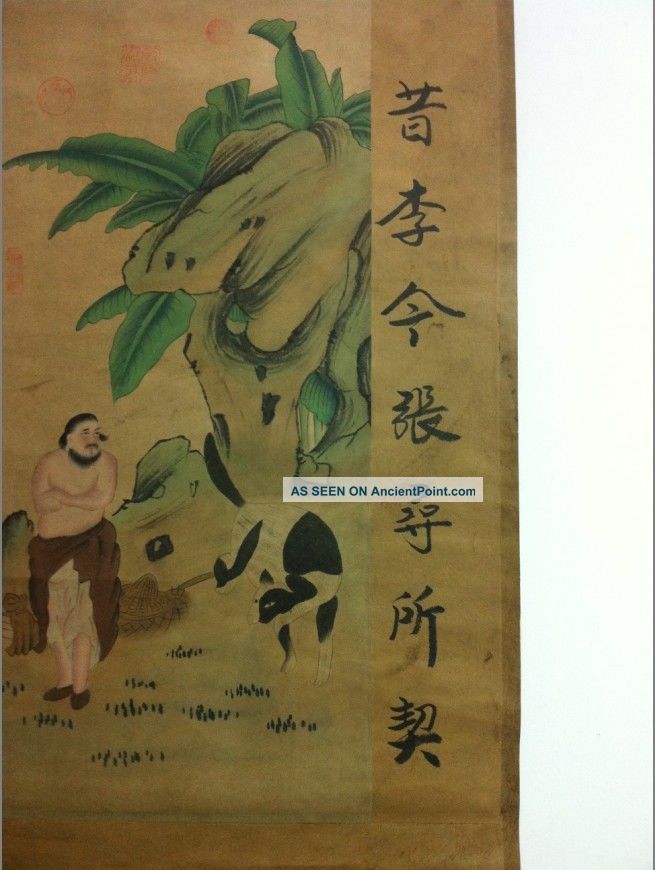 昔李今張尋所契
AS SEEN ON AncientPoint.com